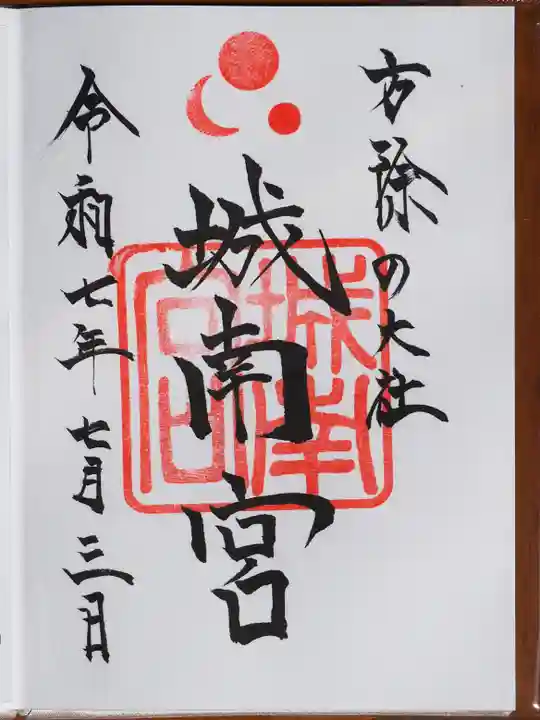 方除の大社
城南宮
城南宮
令和七年七月三日